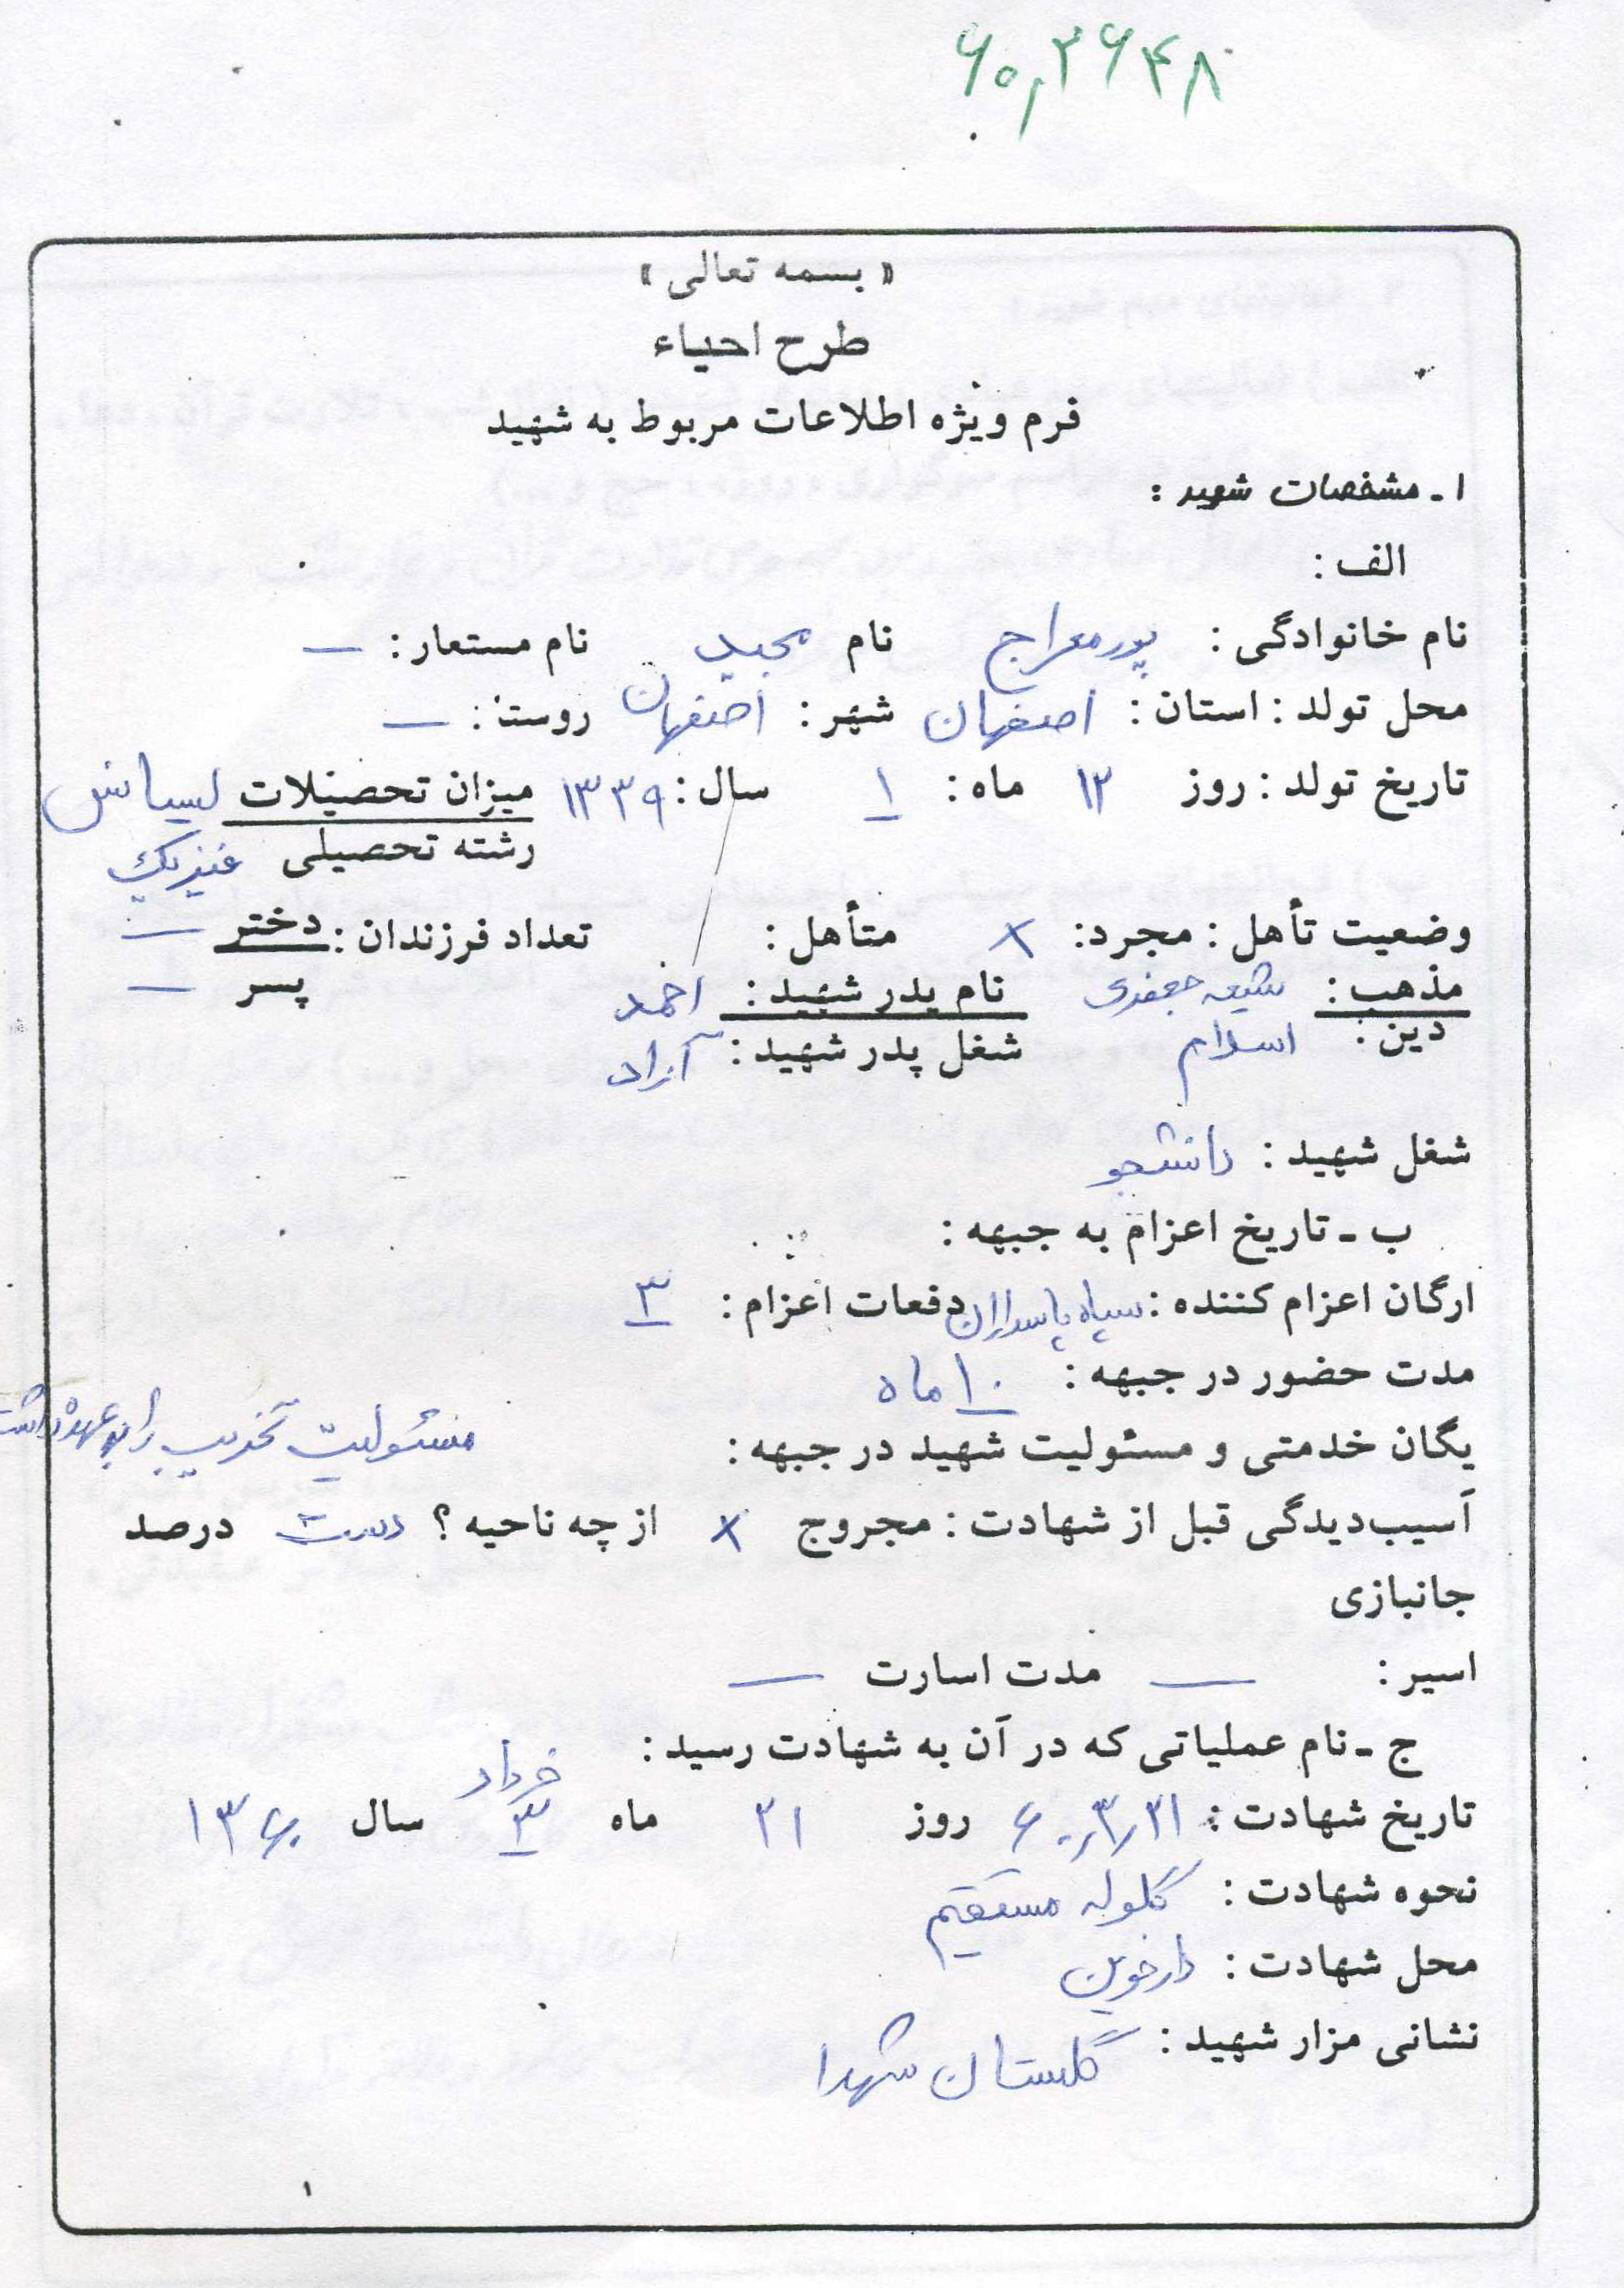 ۶۰,۲۶۴۸
« بسمه تعالی »
طرح احیاء
فرم ویژه اطلاعات مربوط به شهید
۱ ـ مشخصات شهید :
الف :
نام خانوادگی : پورمعراج نام مجید نام مستعار : —
محل تولد : استان : اصفهان شهر : اصفهان روستا : —
تاریخ تولد : روز ۱۲ ماه : ۱ سال : ۱۳۳۹ میزان تحصیلات لیسانس
رشته تحصیلی فیزیک
وضعیت تأهل : مجرد : × متأهل : تعداد فرزندان : دختر —
پسر —
مذهب : شیعه جعفری نام پدر شهید : احمد
دین : اسلام شغل پدر شهید : آزاد
شغل شهید : دانشجو
ب ـ تاریخ اعزام به جبهه :
ارگان اعزام کننده : سپاه پاسداران دفعات اعزام : ۳
مدت حضور در جبهه : ۱۰ ماه
یگان خدمتی و مسئولیت شهید در جبهه : مسئولیت تخریب را به عهده داشت
آسیب‌دیدگی قبل از شهادت : مجروح × از چه ناحیه ؟ دست درصد
جانبازی
اسیر : — مدت اسارت —
ج ـ نام عملیاتی که در آن به شهادت رسید :
تاریخ شهادت : ۶۰/۳/۲۱ روز ۲۱ ماه ۳ خرداد سال ۱۳۶۰
نحوه شهادت : گلوله مستقیم
محل شهادت : دارخوین
نشانی مزار شهید : گلستان شهدا
۱